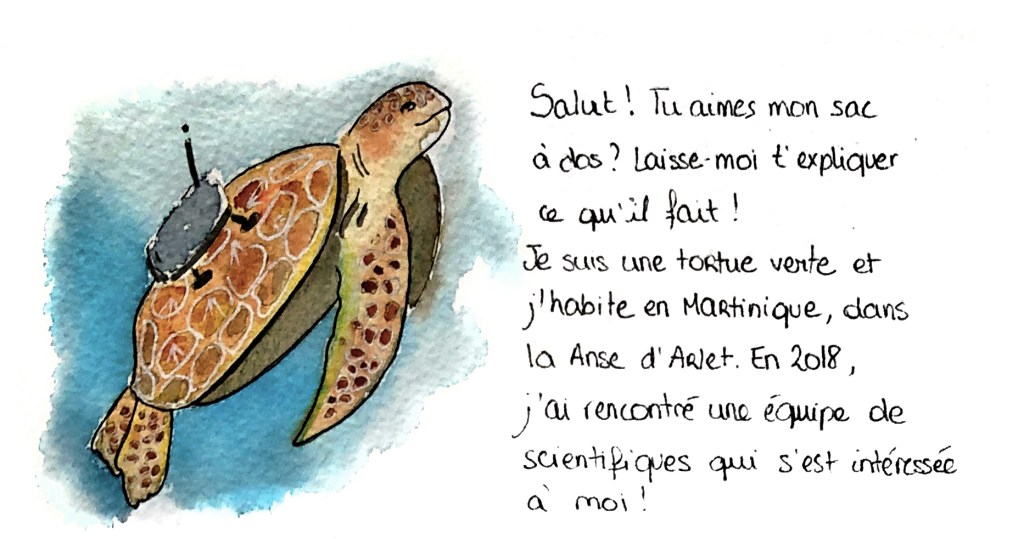 Salut ! Tu aimes mon sac
à dos ? Laisse-moi t'expliquer
ce qu'il fait !
Je suis une tortue verte et
j'habite en Martinique, dans
la Anse d'Arlet. En 2018,
j'ai rencontré une équipe de
scientifiques qui s'est intéressée
à moi !